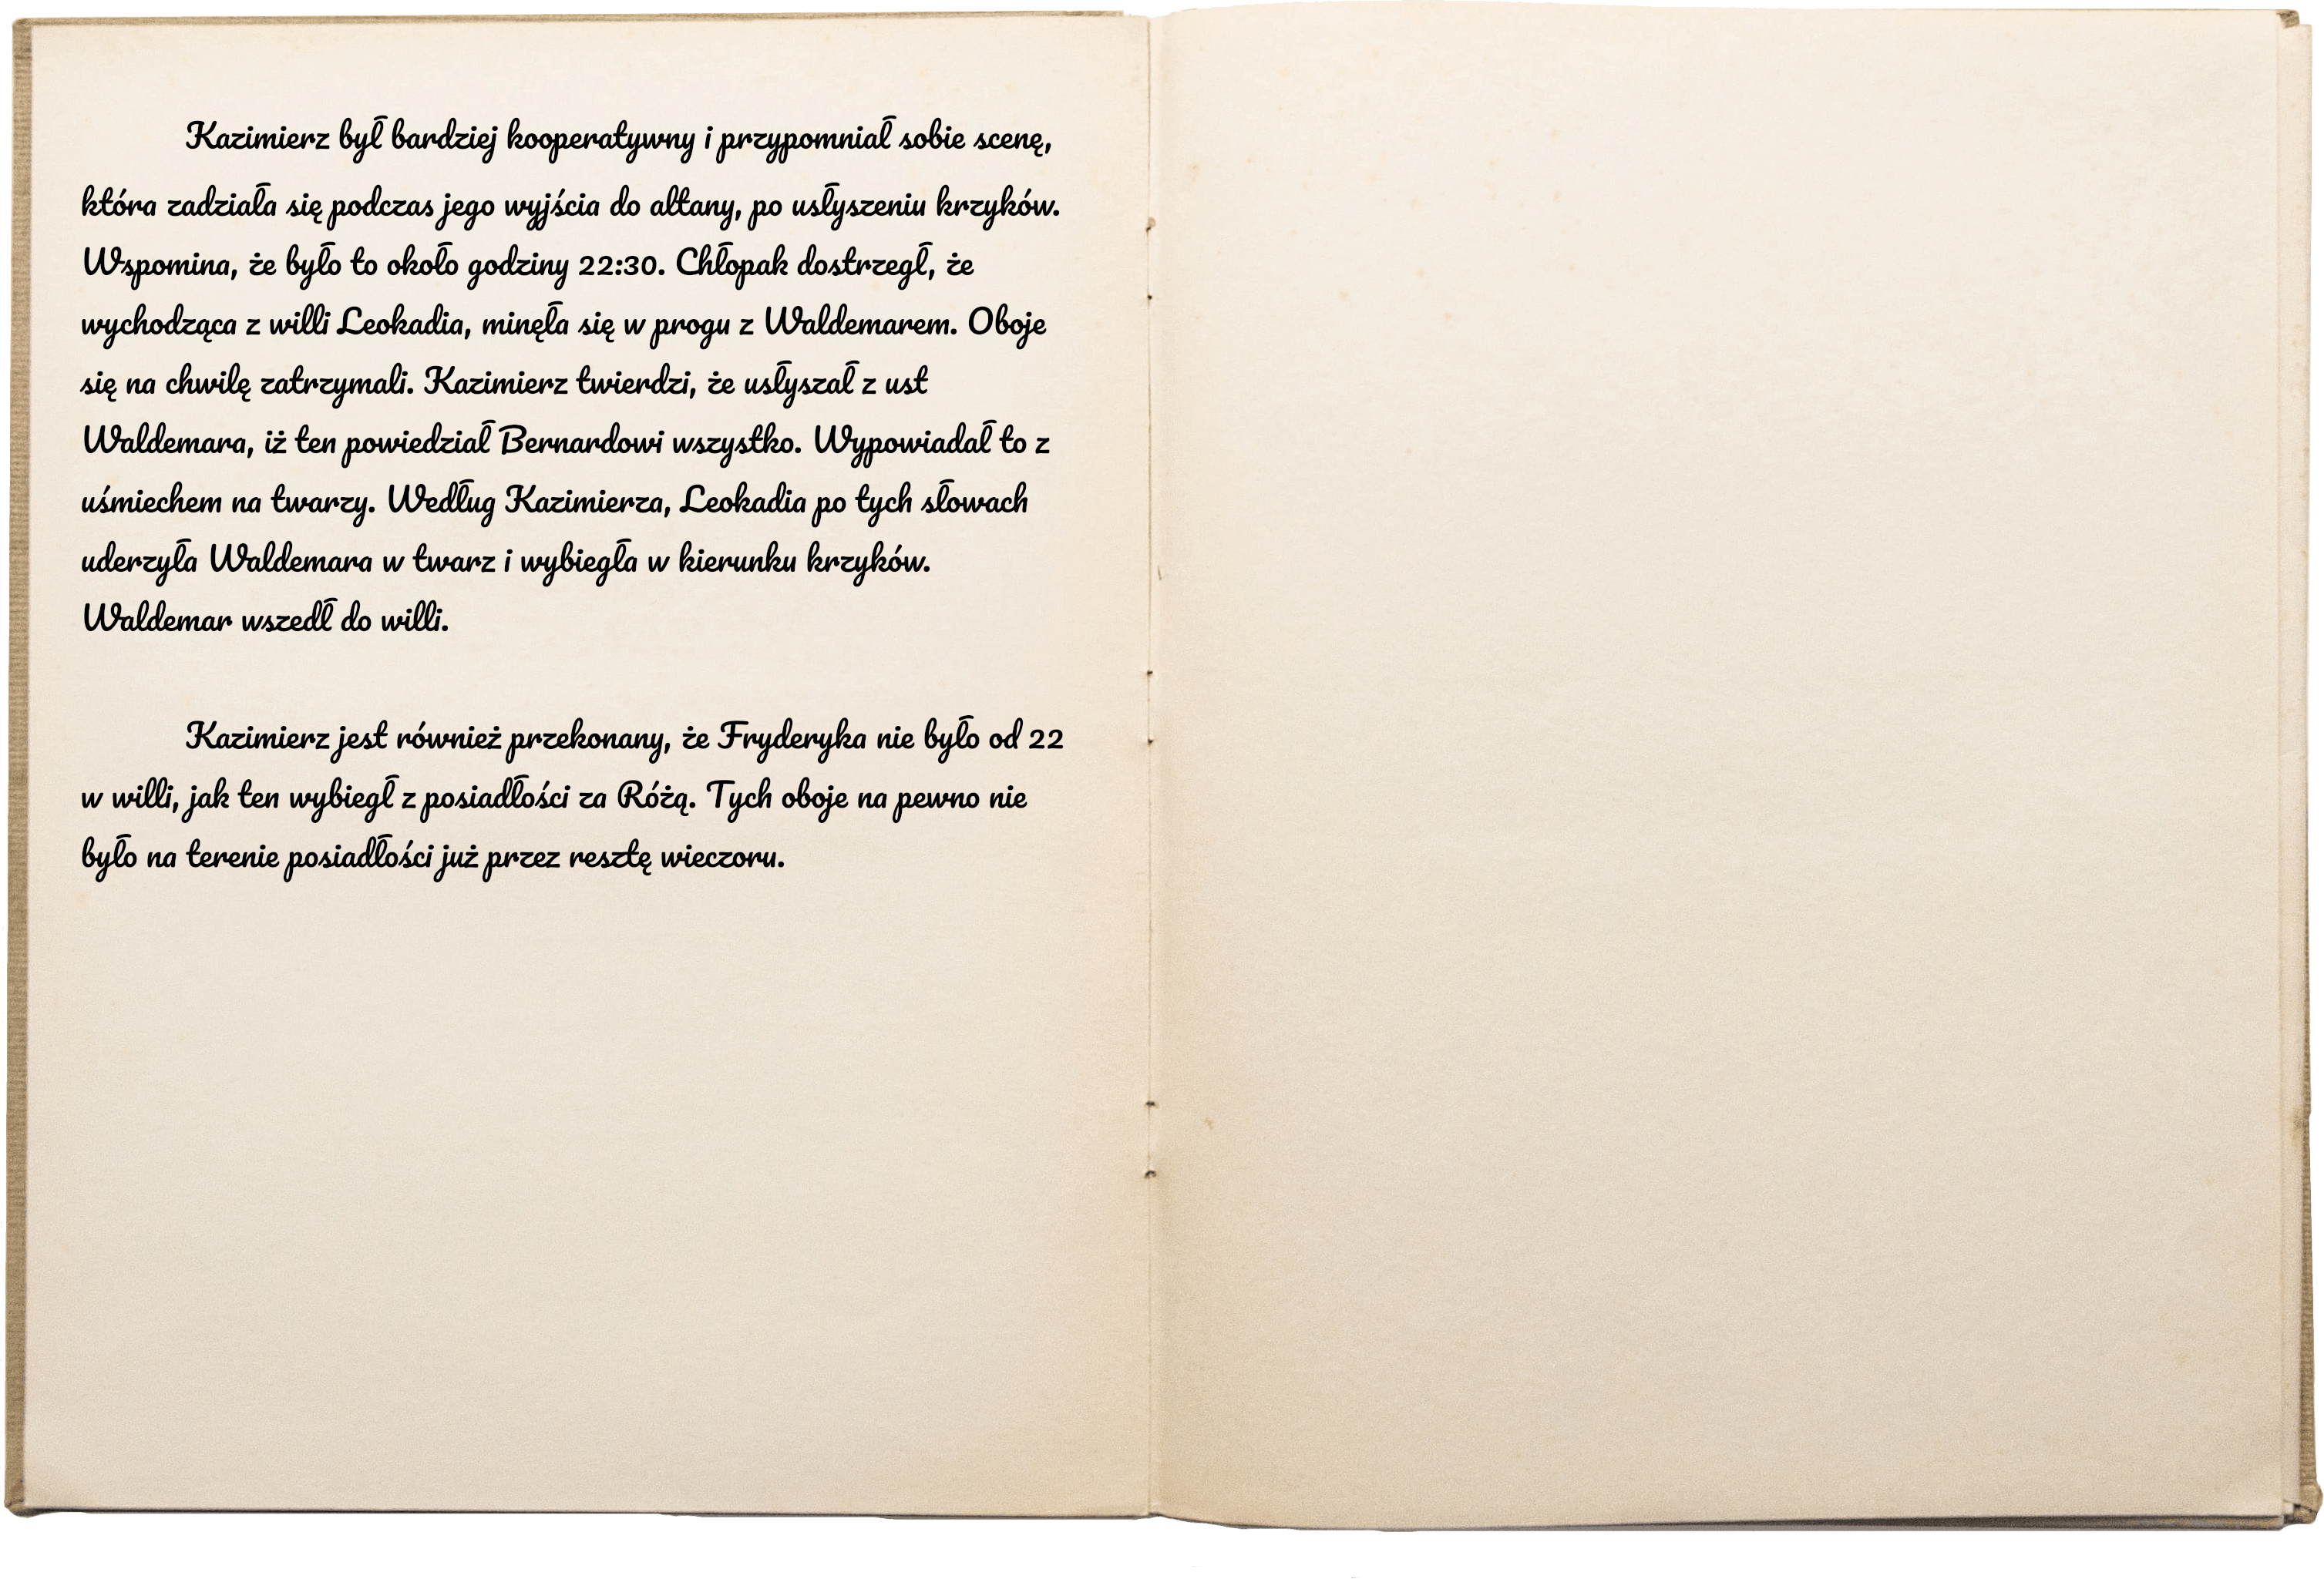 Kazimierz był bardziej kooperatywny i przypomniał sobie scenę,
która zadziała się podczas jego wyjścia do altany, po usłyszeniu krzyków.
Wspomina, że było to około godziny 22:30. Chłopak dostrzegł, że
wychodząca z willi Leokadia, minęła się w progu z Waldemarem. Oboje
się na chwilę zatrzymali. Kazimierz twierdzi, że usłyszał z ust
Waldemara, iż ten powiedział Bernardowi wszystko. Wypowiadał to z
uśmiechem na twarzy. Według Kazimierza, Leokadia po tych słowach
uderzyła Waldemara w twarz i wybiegła w kierunku krzyków.
Waldemar wszedł do willi.
Kazimierz jest również przekonany, że Fryderyka nie było od 22
w willi, jak ten wybiegł z posiadłości za Różą. Tych oboje na pewno nie
było na terenie posiadłości już przez resztę wieczoru.